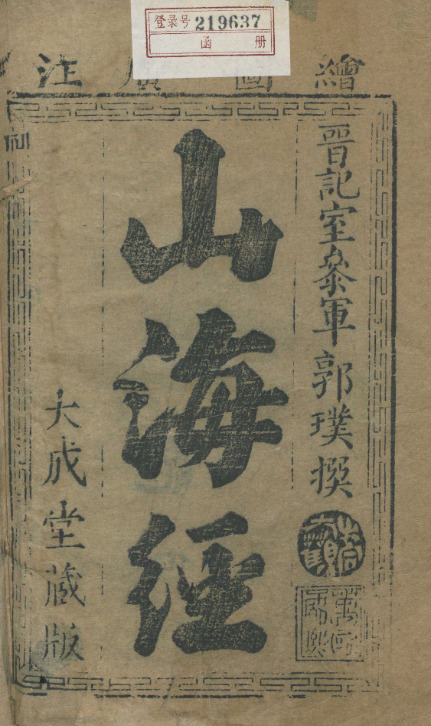 登录号 219637
函 册
繪圖廣注
晉記室參軍郭璞撰
山海經
大成堂藏版